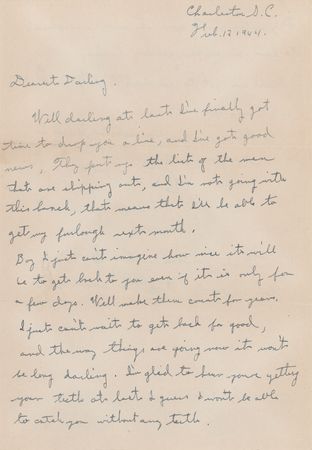 Charleston S.C.
Feb. 12 1944.
Dearest Darling.
Well darling at last I've finally got
time to drop you a line, and I've got good
news, They put up the list of the men
that are shipping out, and I'm not going with
this bunch, that means that I'll be able to
get my furlough next month.
Boy I just can't imagine how nice it will
be to get back to you even if it is only for
a few days. We'll make them count for years.
I just can't wait to get back for good,
and the way things are going now it won't
be long darling. I'm glad to hear you're getting
your teeth at last I guess I won't be able
to catch you without any teeth.